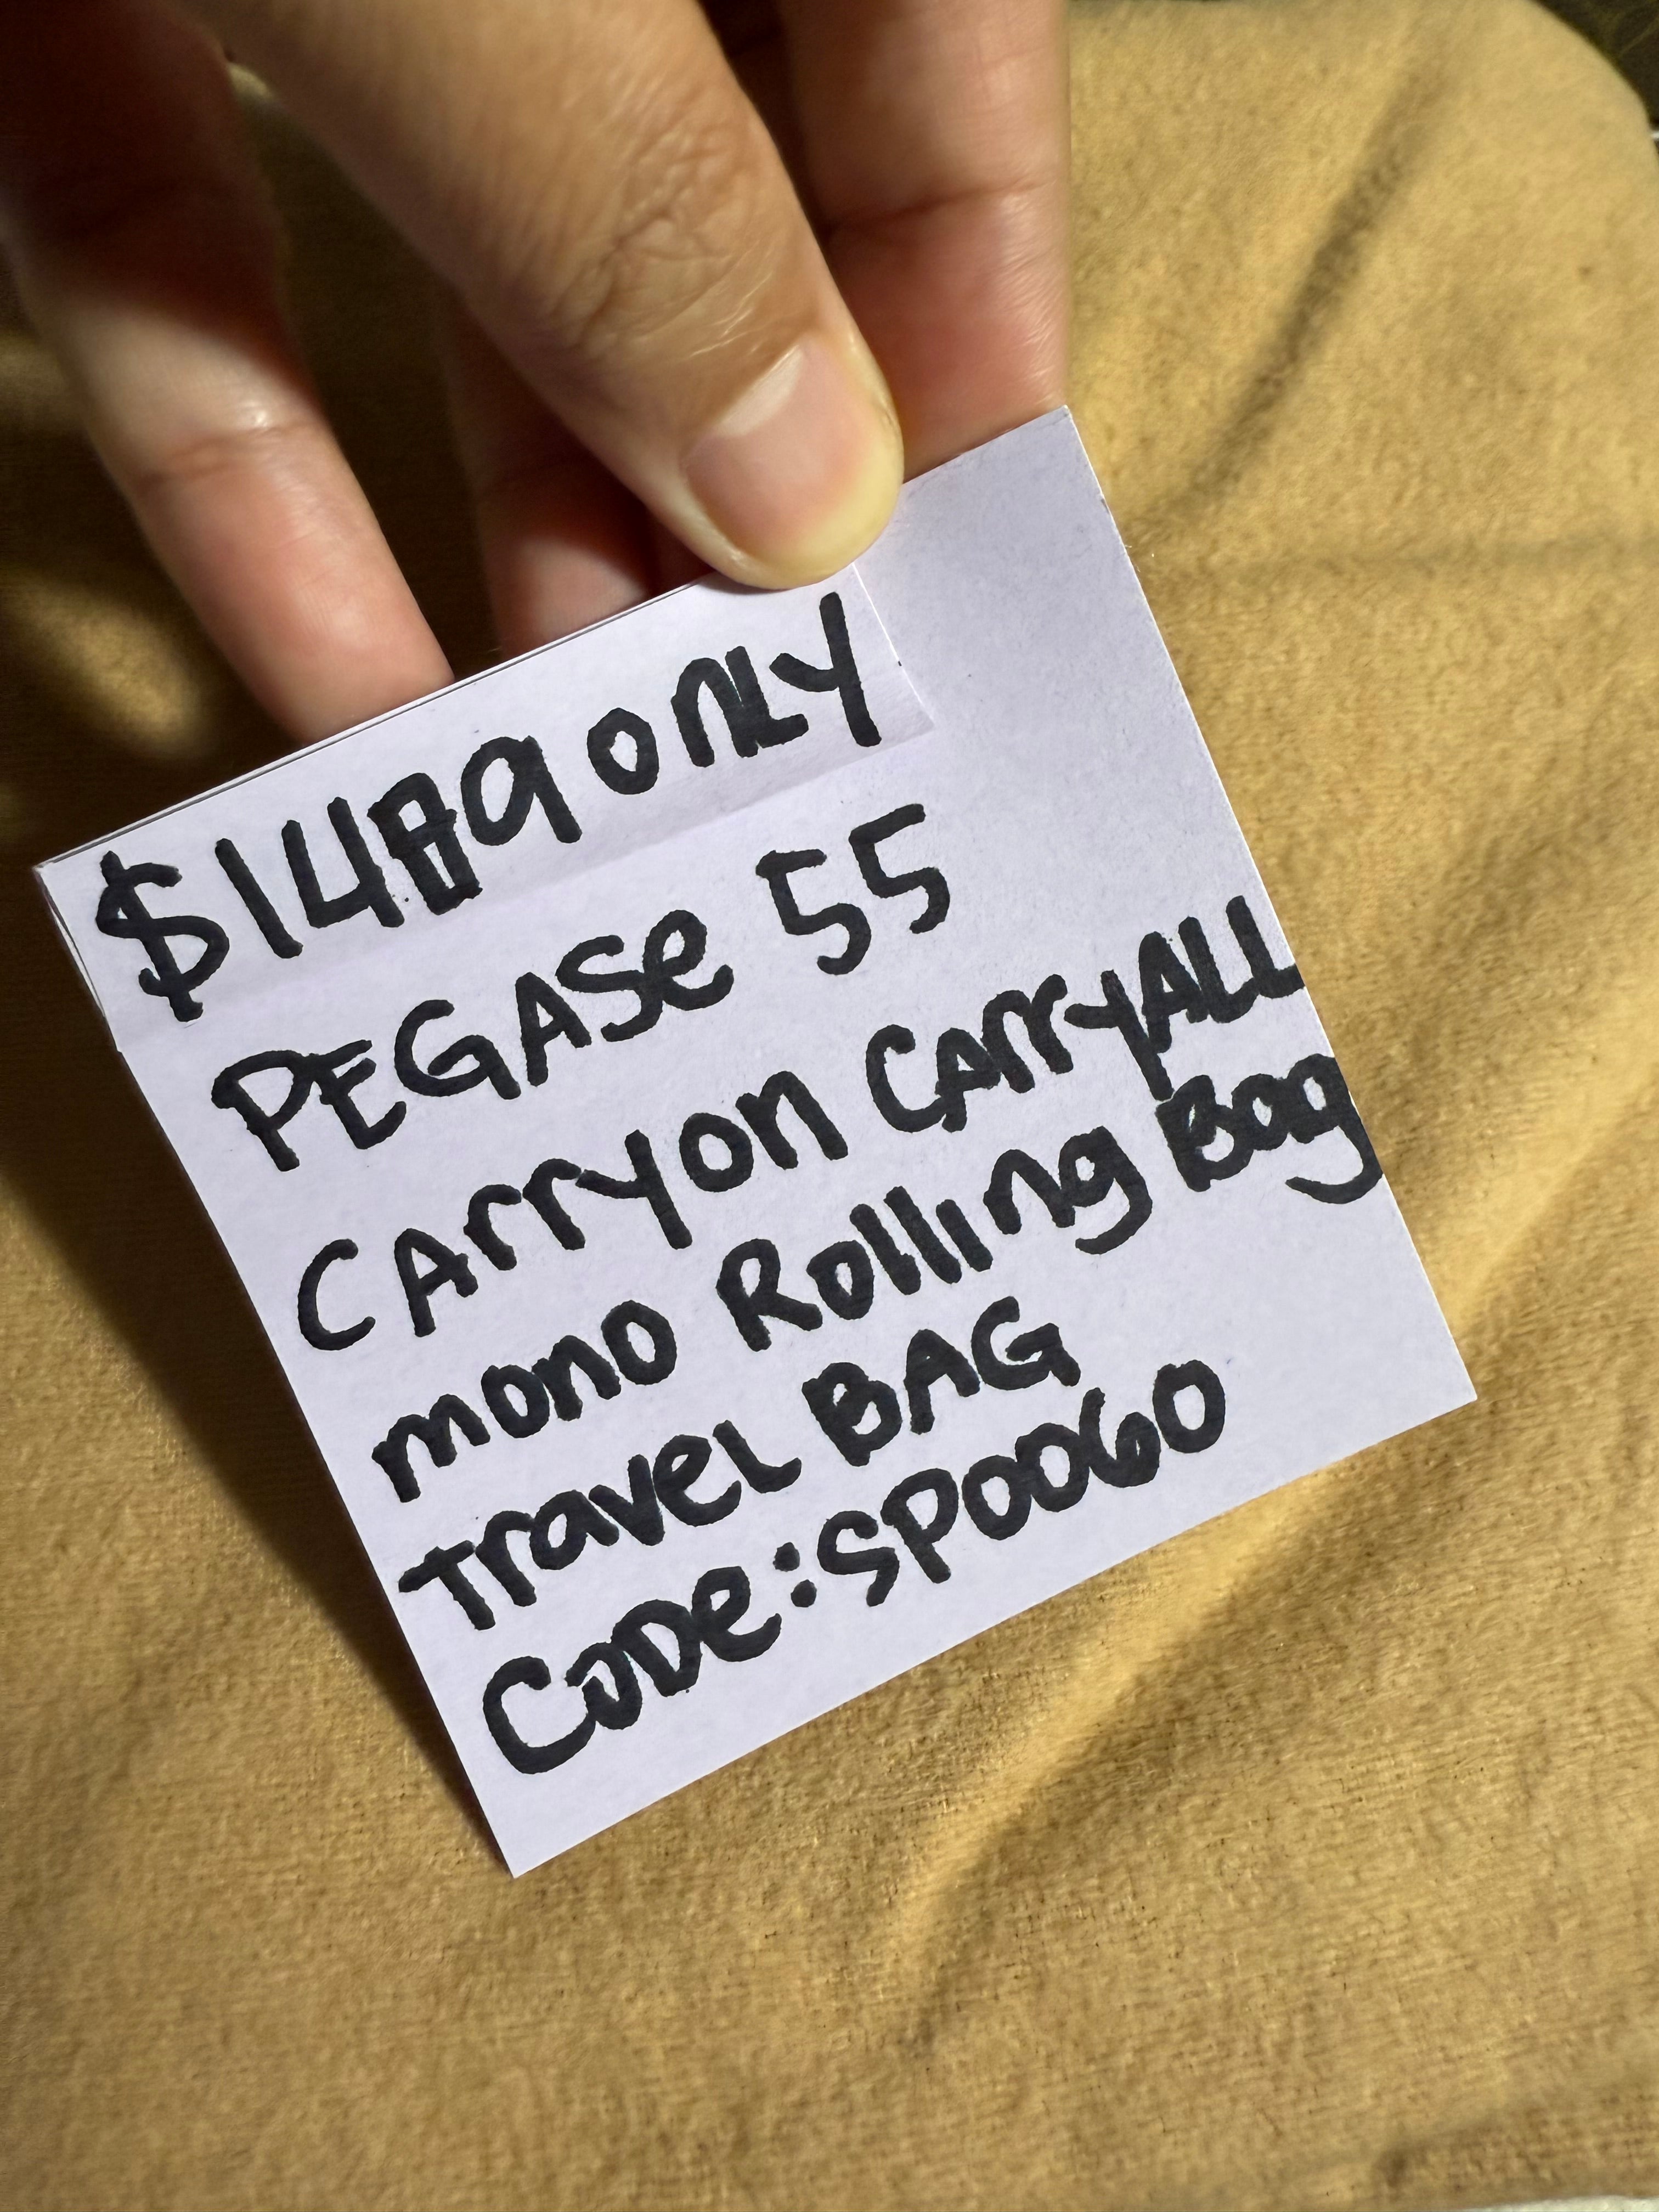 $1489 only
PEGASe 55
CArryon CArryALL
mono Rolling Bag
Travel BAG
CoDe:SP0060